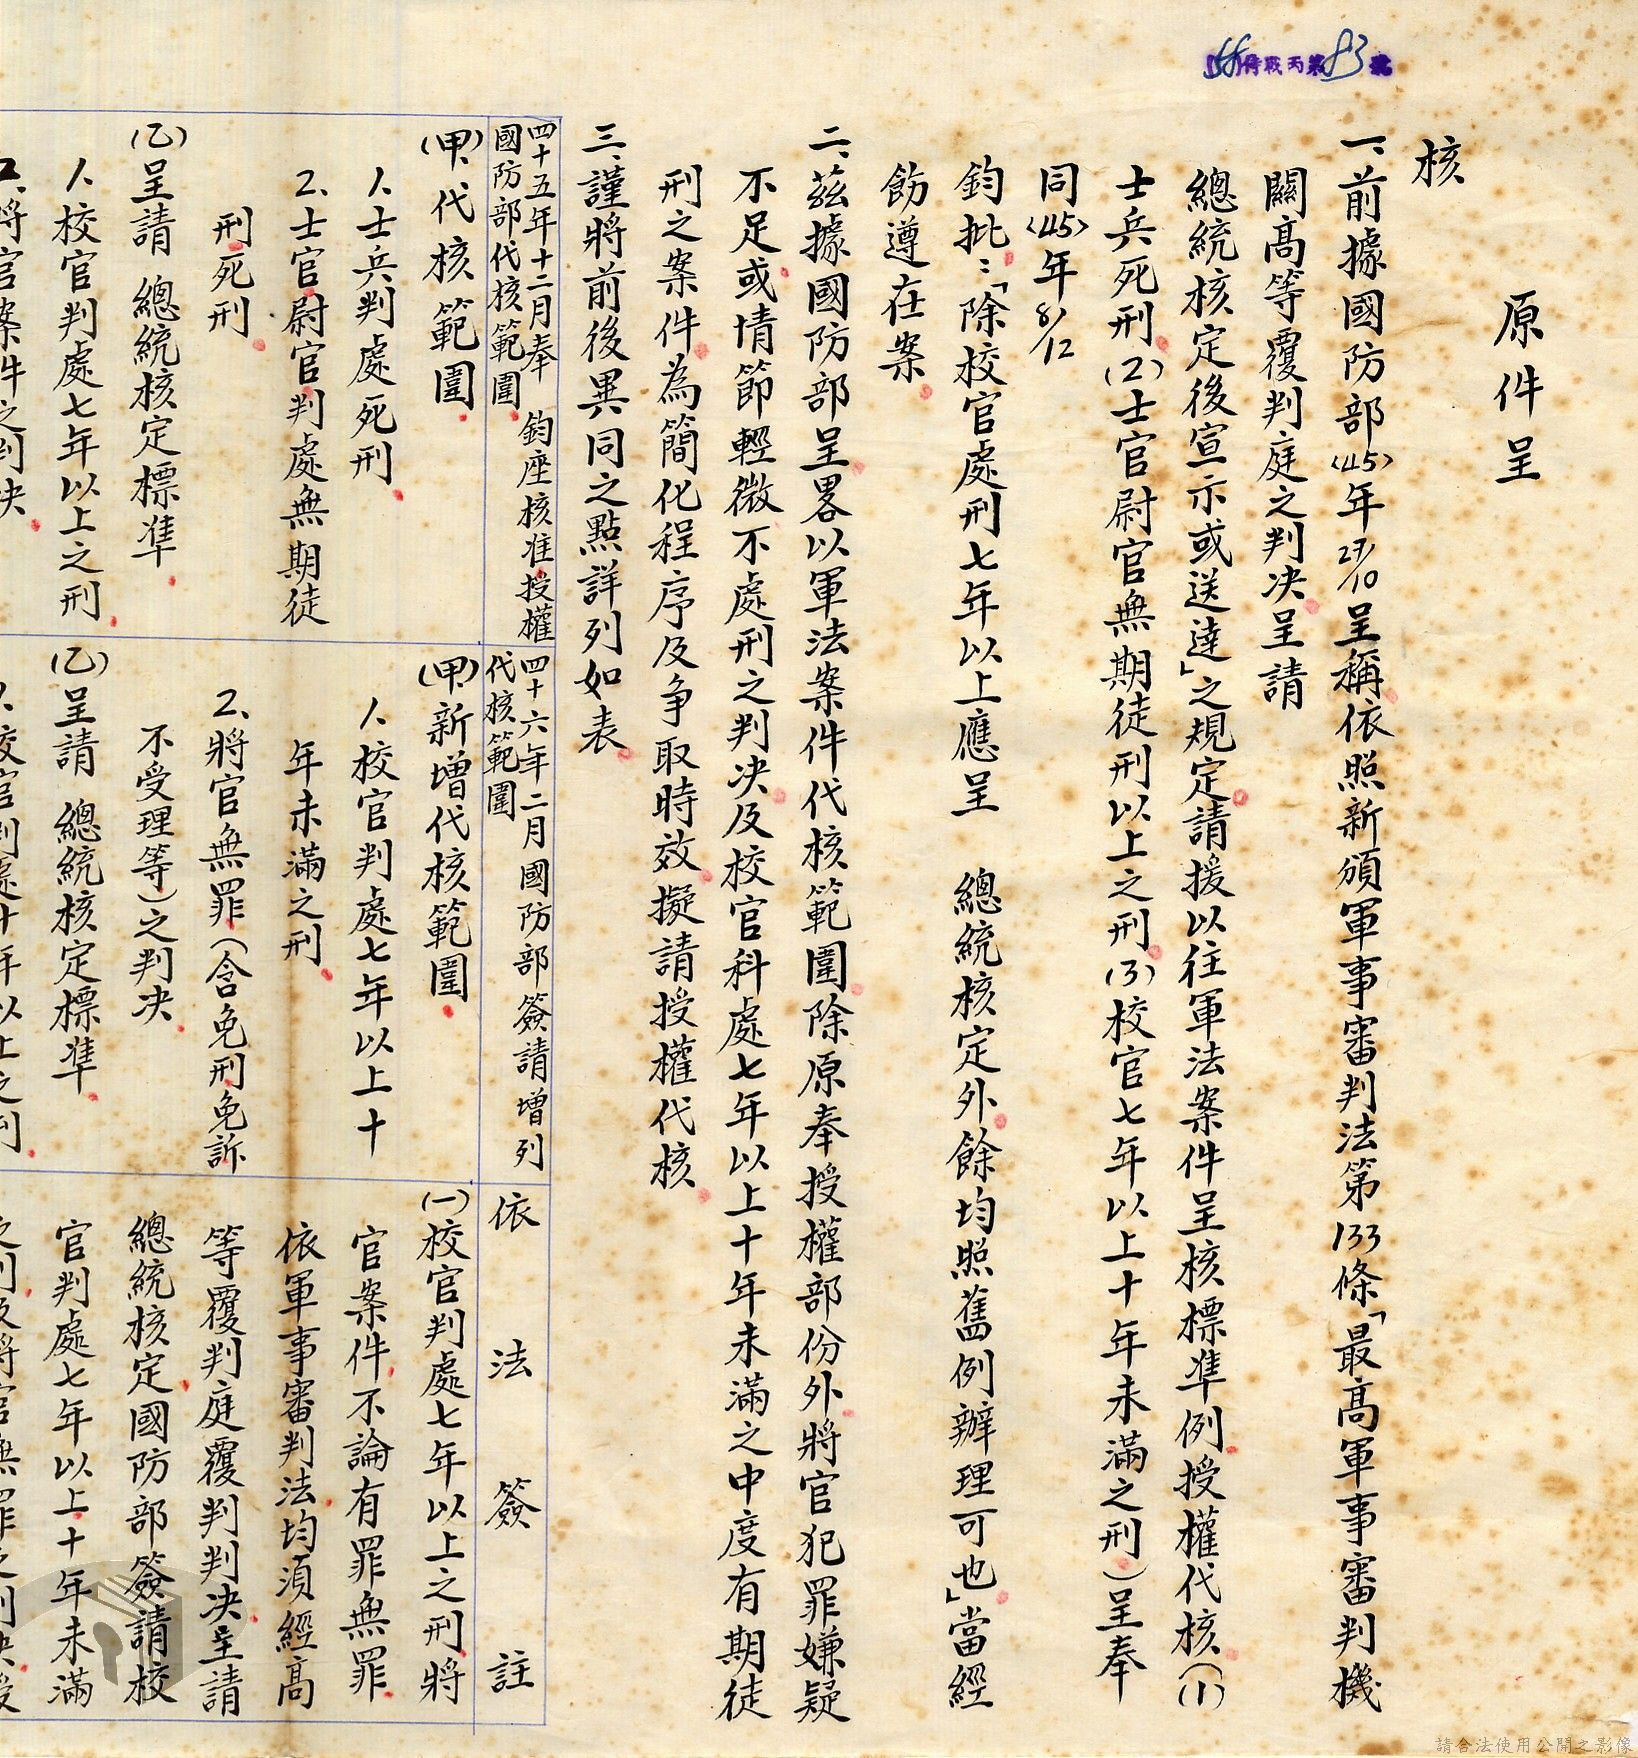 原件呈
核
一、前據國防部(45)年27/10呈稱依照新頒軍事審判法第133條「最高軍事審判機
關高等覆判庭之判決呈請
總統核定後宣示或送達」之規定請援以往軍法案件呈核標準例授權代核((1)
士兵死刑(2)士官尉官無期徒刑以上之刑(3)校官七年以上十年未滿之刑)呈奉
同(45)年8/12
鈞批：「除校官處刑七年以上應呈　總統核定外餘均照舊例辦理可也」當經
飭遵在案
二、茲據國防部呈畧以軍法案件代核範圍除原奉授權部份外將官犯罪嫌疑
不足或情節輕微不處刑之判決及校官科處七年以上十年未滿之中度有期徒
刑之案件為簡化程序及争取時效擬請授權代核
三、謹將前後異同之點詳列如表
四十五年十二月奉　鈞座核准授權
國防部代核範圍
(甲)代核範圍
1、士兵判處死刑
2、士官尉官判處無期徒
刑死刑
(乙)呈請　總統核定標準
1、校官判處七年以上之刑
2、將官案件之判決
四十六年二月國防部簽請增列
代核範圍
(甲)新增代核範圍
1、校官判處七年以上十
年未滿之刑
2、將官無罪(含免刑免訴
不受理等)之判決
(乙)呈請　總統核定標準
1、校官判處十年以上之刑
依法簽註
(一)校官判處七年以上之刑將
官案件不論有罪無罪
依軍事審判法均須經高
等覆判庭覆判判決呈請
總統核定國防部簽請校
官判處七年以上十年未滿
之刑及將官無罪之判決授
第83號
請合法使用公開之影像